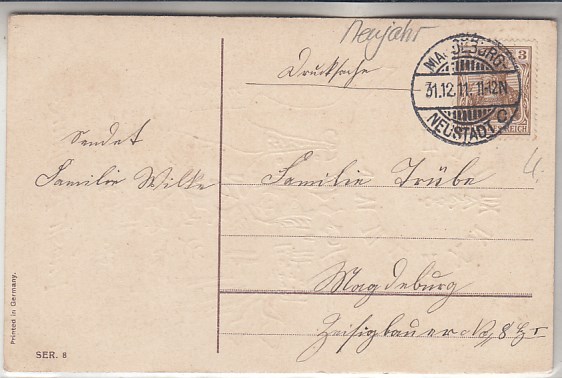 Neujahr
Drucksache
3
MAGDEBURG-
31.12.11. 11-12N
NEUSTADT C
REICH
Sendet
Familie Wilke
Familie Trübe
Magdeburg
8
Printed in Germany.
SER. 8